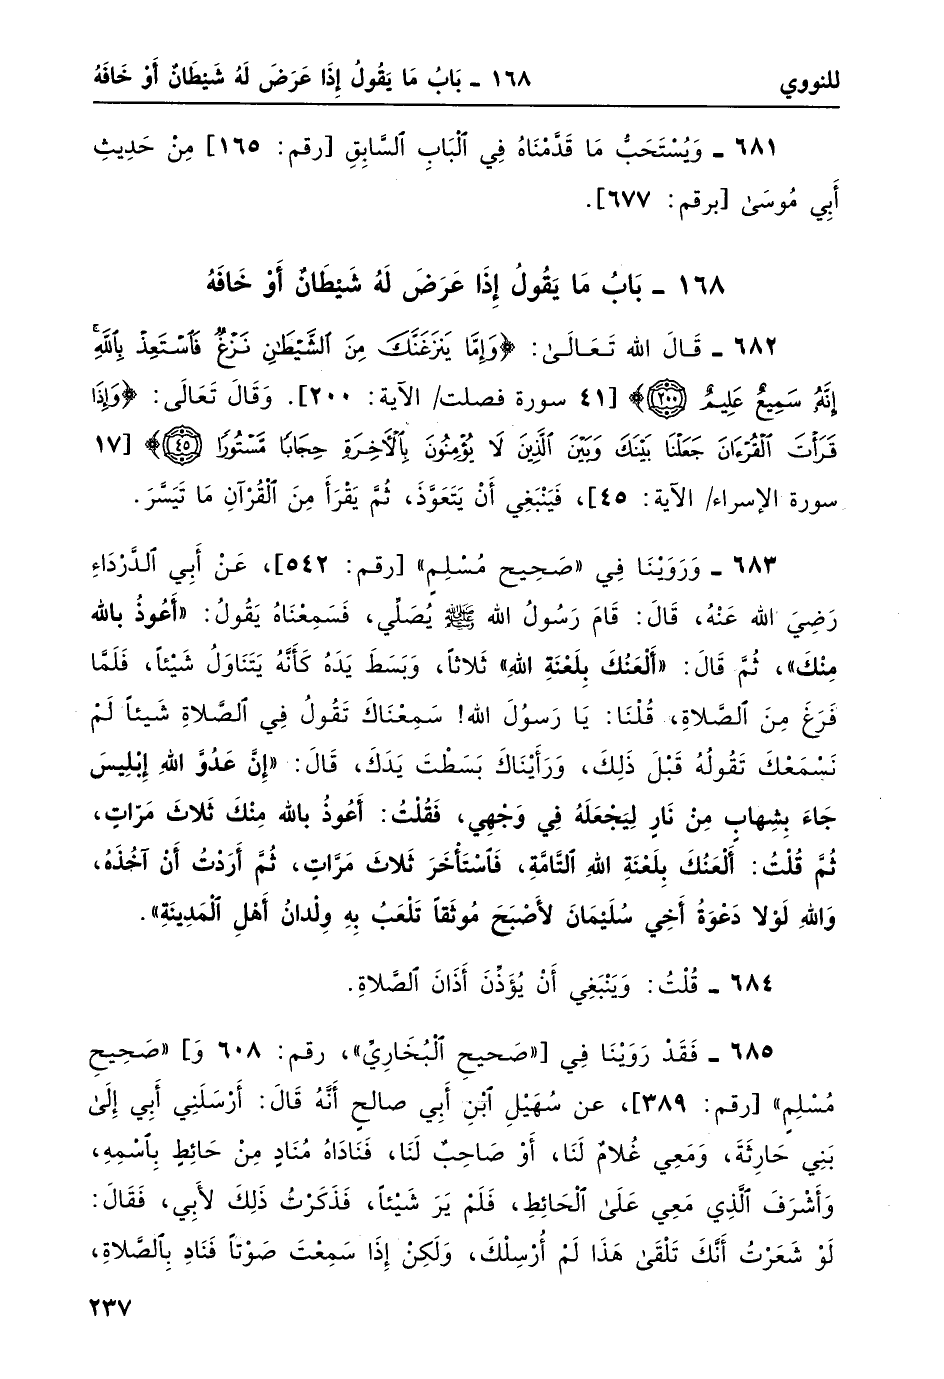 للنووي ١٦٨ ـ بَابُ مَا يَقُولُ إِذَا عَرَضَ لَهُ شَيْطَانٌ أَوْ خَافَهُ
٦٨١ ـ وَيُسْتَحَبُّ مَا قَدَّمْنَاهُ فِي ٱلْبَابِ ٱلسَّابِقِ [رقم: ١٦٥] مِنْ حَدِيثِ
أَبِي مُوسَىٰ [برقم: ٦٧٧].
١٦٨ ـ بَابُ مَا يَقُولُ إِذَا عَرَضَ لَهُ شَيْطَانٌ أَوْ خَافَهُ
٦٨٢ ـ قَـالَ الله تَعَـالَـىٰ: ﴿وَإِمَّا يَنزَغَنَّكَ مِنَ ٱلشَّيْطَٰنِ نَزْغٌ فَٱسْتَعِذْ بِٱللَّهِ ۚ
إِنَّهُۥ سَمِيعٌ عَلِيمٌ ۝٢٠٠﴾ [٤١ سورة فصلت/ الآية: ٢٠٠]. وَقَالَ تَعَالَى: ﴿وَإِذَا
قَرَأْتَ ٱلْقُرْءَانَ جَعَلْنَا بَيْنَكَ وَبَيْنَ ٱلَّذِينَ لَا يُؤْمِنُونَ بِٱلْأَخِرَةِ حِجَابًا مَّسْتُورًا ۝٤٥﴾ [١٧
سورة الإسراء/ الآية: ٤٥]، فَيَنْبَغِي أَنْ يَتَعَوَّذَ، ثُمَّ يَقْرَأَ مِنَ ٱلْقُرْآنِ مَا تَيَسَّرَ.
٦٨٣ ـ وَرَوَيْنَا فِي «صَحِيحِ مُسْلِمٍ» [رقم: ٥٤٢]، عَنْ أَبِي ٱلدَّرْدَاءِ
رَضِيَ الله عَنْهُ، قَالَ: قَامَ رَسُولُ الله ﷺ يُصَلِّي، فَسَمِعْنَاهُ يَقُولُ: «أَعُوذُ بالله
مِنْكَ»، ثُمَّ قَالَ: «أَلْعَنُكَ بِلَعْنَةِ اللهِ» ثَلاثاً، وَبَسَطَ يَدَهُ كَأَنَّهُ يَتَنَاوَلُ شَيْئاً، فَلَمَّا
فَرَغَ مِنَ ٱلصَّلاةِ، قُلْنَا: يَا رَسوُلَ الله! سَمِعْنَاكَ تَقُولُ فِي ٱلصَّلاةِ شَيئاً لَمْ
نَسْمَعْكَ تَقُولُهُ قَبْلَ ذَلِكَ، وَرَأَيْنَاكَ بَسَطْتَ يَدَكَ، قَالَ: «إِنَّ عَدُوَّ اللهِ إِبْلِيسَ
جَاءَ بِشِهابٍ مِنْ نَارٍ لِيَجْعَلَهُ فِي وَجْهِي، فَقُلْتُ: أَعُوذُ بالله مِنْكَ ثَلاثَ مَرّاتٍ،
ثُمَّ قُلْتُ: أَلْعَنُكَ بِلَعْنَةِ اللهِ ٱلتَّامَّةِ، فَٱسْتَأْخَرَ ثَلاثَ مَرَّاتٍ، ثُمَّ أَرَدْتُ أَنْ آخُذَهُ،
وَاللهِ لَوْلا دَعْوَةُ أَخِي سُلَيْمَانَ لأَصْبَحَ مُوثَقاً تَلْعَبُ بِهِ وِلْدانُ أَهْلِ ٱلْمَدِينَةِ».
٦٨٤ ـ قُلْتُ: وَيَنْبَغِي أَنْ يُؤَذِّنَ أَذَانَ ٱلصَّلاةِ.
٦٨٥ ـ فَقَدْ رَوَيْنَا فِي [«صَحيحِ ٱلْبُخَارِيِّ»، رقم: ٦٠٨ وَ] «صَحِيحِ
مُسْلِمٍ» [رقم: ٣٨٩]، عن سُهَيْلِ ٱبْنِ أَبِي صالحٍ أَنَّهُ قَالَ: أَرْسَلَنِي أَبِي إِلَىٰ
بَنِي حَارِثَةَ، وَمَعِي غُلامٌ لَنَا، أَوْ صَاحِبٌ لَنَا، فَنَادَاهُ مُنَادٍ مِنْ حَائِطٍ بِٱسْمِهِ،
وَأَشْرَفَ ٱلَّذِي مَعِي عَلَىٰ ٱلْحَائِطِ، فَلَمْ يَرَ شَيْئاً، فَذَكَرْتُ ذَلِكَ لأَبِي، فَقَالَ:
لَوْ شَعَرْتُ أَنَّكَ تَلْقَىٰ هَذَا لَمْ أُرْسِلْكَ، وَلَكِنْ إِذَا سَمِعْتَ صَوْتاً فَنَادِ بِٱلصَّلاةِ،
٢٣٧